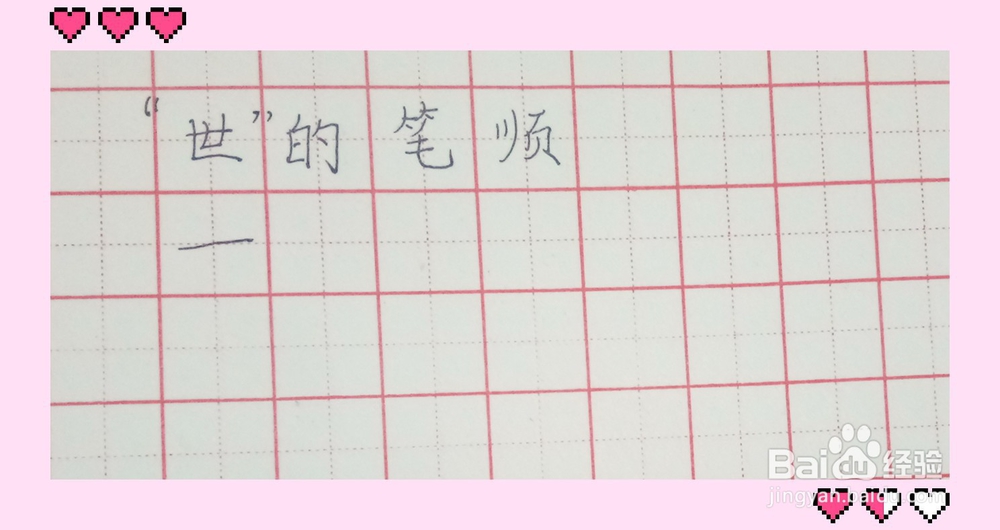 “世”的笔顺
一
Baidu经验
jingyan.baidu.com